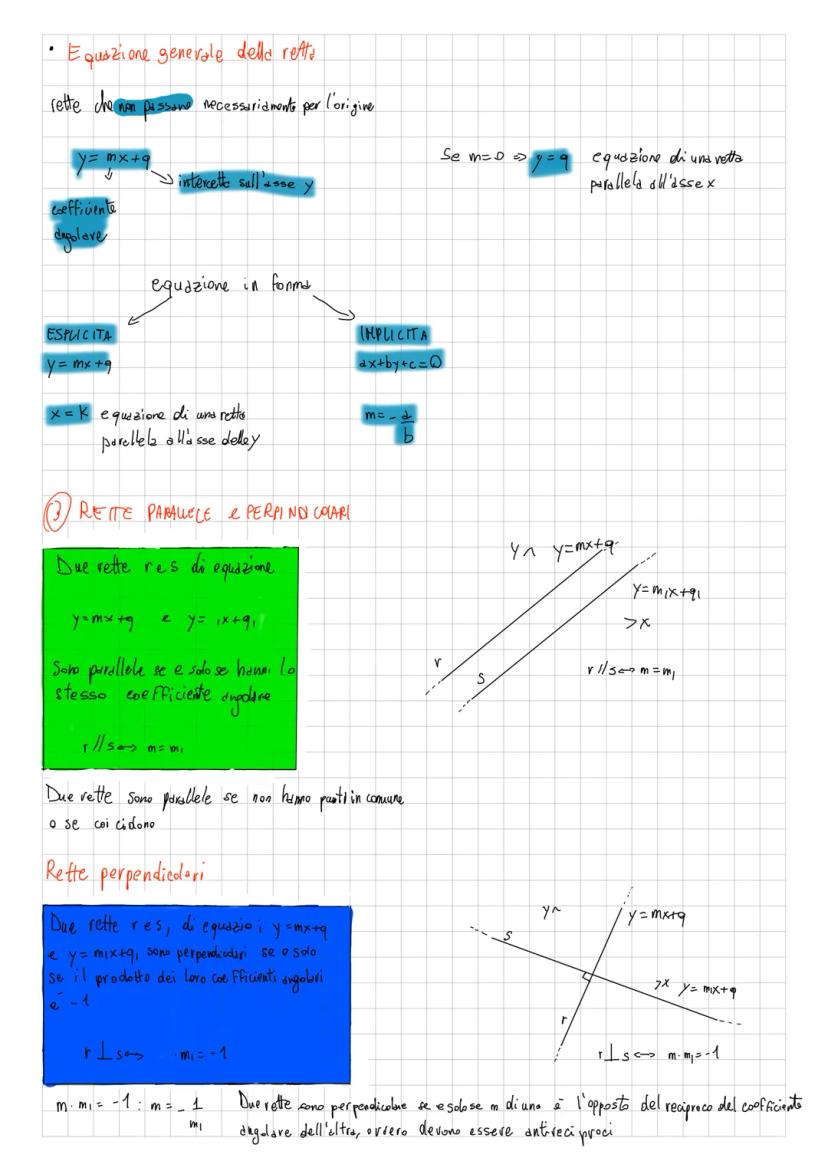 • Equazione generale della retta
rette che non passano necessariamente per l'origine
y = mx+q
Se m=0 ⇒ y = q equazione di una retta
intercetta sull'asse y
parallela all'asse x
coefficiente
angolare
equazione in forma
ESPLICITA
IMPLICITA
y = mx+q
ax+by+c=0
x = K equazione di una retta
parallela all'asse delle y
m = - a
b
3 RETTE PARALLELE e PERPENDICOLARI
Due rette r e s di equazione
y=mx+q e y= 1x+q1
Sono parallele se e solo se hanno lo
stesso coefficiente angolare
r//s ⇔ m=m1
y y=mx+q
y=m1x+q1
>x
r
s
r//s ⇔ m=m1
Due rette sono parallele se non hanno punti in comune
o se coicidono
Rette perpendicolari
Due rette r e s, di equazio i y=mx+q
e y=m1x+q1 sono perpendicolari se e solo
se il prodotto dei loro coefficienti angolari
è -1
r⊥s ⇔ ·m1=-1
y
y=mx+q
s
>x y=m1x+q
r
r⊥s ⇔ m·m1=-1
m·m1=-1 : m=- 1
m1
Due rette sono perpendicolare se e solo se m di una è l'opposto del reciproco del coefficiente
angolare dell'altra, ovvero devono essere antireciproci